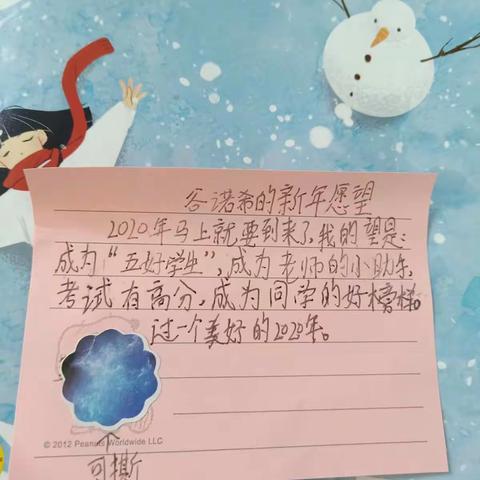 谷诺希的新年愿望
2020年马上就要到来了,我的望是:
成为“五好学生”,成为老师的小助手,
考试有高分,成为同学的好榜样。
过一个美好的2020年。
© 2012 Peanuts Worldwide LLC
可撕